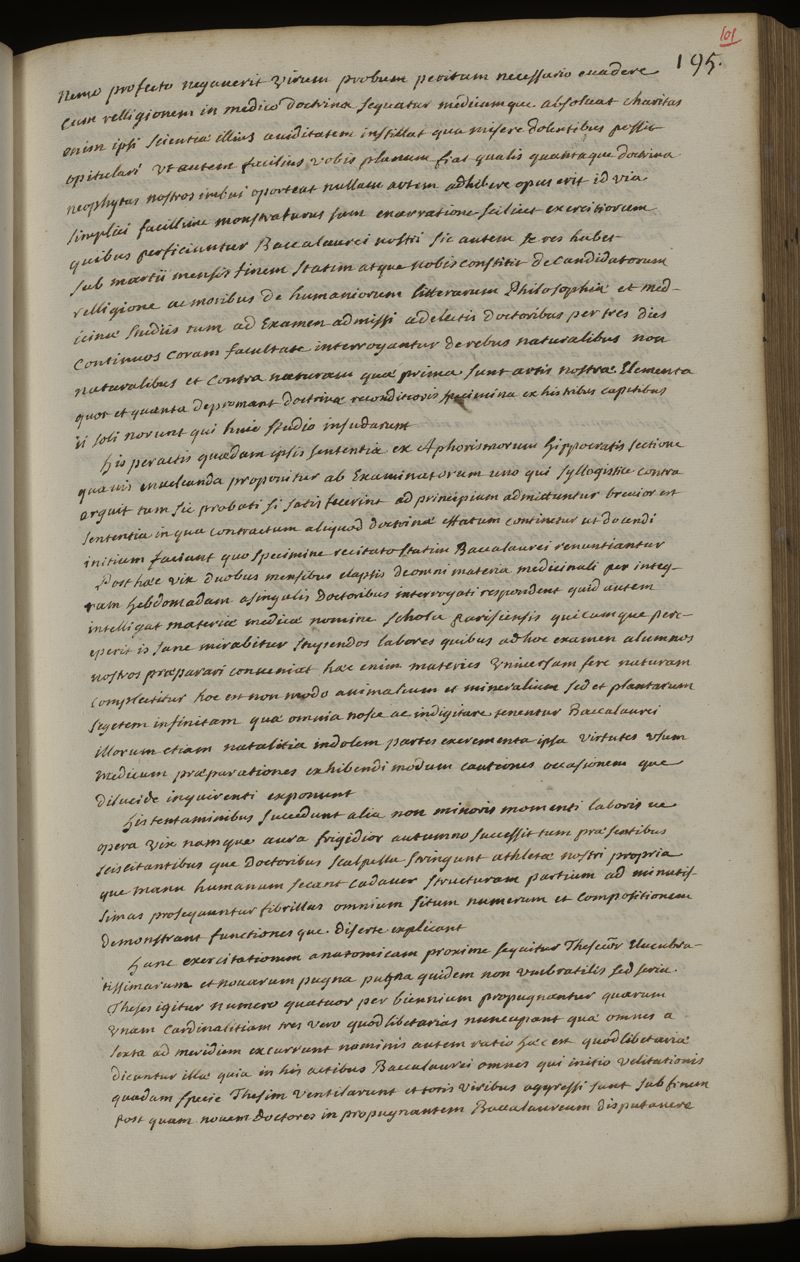 101
195.
Nemo profecto negaverit virum probum peritum necessario evadere
Cum relligionem in medico doctrina sequatur medicumque absolvat charitas
enim ipsi scientiæ illius aviditatem instillat qua misere dolentibus possit
opitulari ut autem facilius vobis planum fiat qualis quantaque doctrina
neophytos nostros imbui oporteat nullam artem adhibere opus erit id via
simplici facillime monstraturus sum enarratione scilicet exercitiorum
quibus perficiuntur Baccalaurei nostri sic autem se res habet
sub martii mensis finem statim atque nobis constitit de candidatorum
relligione ac moribus de humaniorum litterarum Philosophiæ et med-
icinæ studiis tum ad Examen admissi a delectis doctoribus per tres dies
Continuos coram facultate interrogantur de rebus naturalibus non
naturalibus et contra naturam quæ prima sunt artis nostræ Elementa
quot et quanta depromant doctrinæ reconditioris specimina ex his tribus capitibus
ii soli norunt qui huic studio insudarunt
His peractis quædam ipsis sententia ex Aphorismorum Hippocratis sectione
quavis enucleanda proponitur ab Examinatorum uno qui syllogistice contra
arguit tum sic probati si satis fecerint ad principium admittuntur brevior est
sententia in qua contractum aliquod doctrinæ effatum continetur ut docendi
initium faciant quo specimine recitato statim Baccalaurei renuntiantur
Post hæc vix duobus mensibus elapsis de omni materia medicinali per integ-
ram hebdomadam a singulis Doctoribus interrogati respondent quid autem
intelligat materiæ medicæ nomine schola parisiensis quicumque perc-
eperit is sane mirabitur stupendos labores quibus ad hoc examen alumnos
nostros præparari conveniat hæc enim materies Universam fere naturam
complectitur hoc est non modo animalium et mineralium sed et plantarum
segetem infinitam quæ omnia nosse ac indigitare tenentur Baccalaurei
illorum etiam natalitia indolem partes excrementa ipsa virtutes usum
medicum præparationes exhibendi modum cautiones occasionem que
dilucide inquirenti exponunt
His tentaminibus succedunt alia non minoris momenti laboris ve
opera vix namque aura frigidior autumno successit tum præsentibus
sciscitantibus que Doctoribus scalpellu stringunt athletæ nostri propria
que manu humanum secant cadaver structuram partium ad minutis-
simas prosequuntur fibrillas omnium situm numerum et compositionem
demonstrant functiones que diserte explicant
Hanc exercitationem anatomicam proxime sequitur Theseωr elucubra-
tissimarum et novarum pugna pugna quidem non umbratilis sed seria.
Theses igitur numero quatuor per biennium propugnantur quarum
Unam Cardinalitiam tres vero quodlibetarias nuncupant quæ omnes a
sexta ad meridiem excurrunt nominis autem ratio hæc est quodlibetariæ
dicuntur illæ quia in his actibus Baccalaurei omnes qui initio velitationis
quadam specie Thesim ventilarunt et toris viribus aggressi sunt sub finem
post quam novem doctores in propugnantem Baccalaureum disputavere